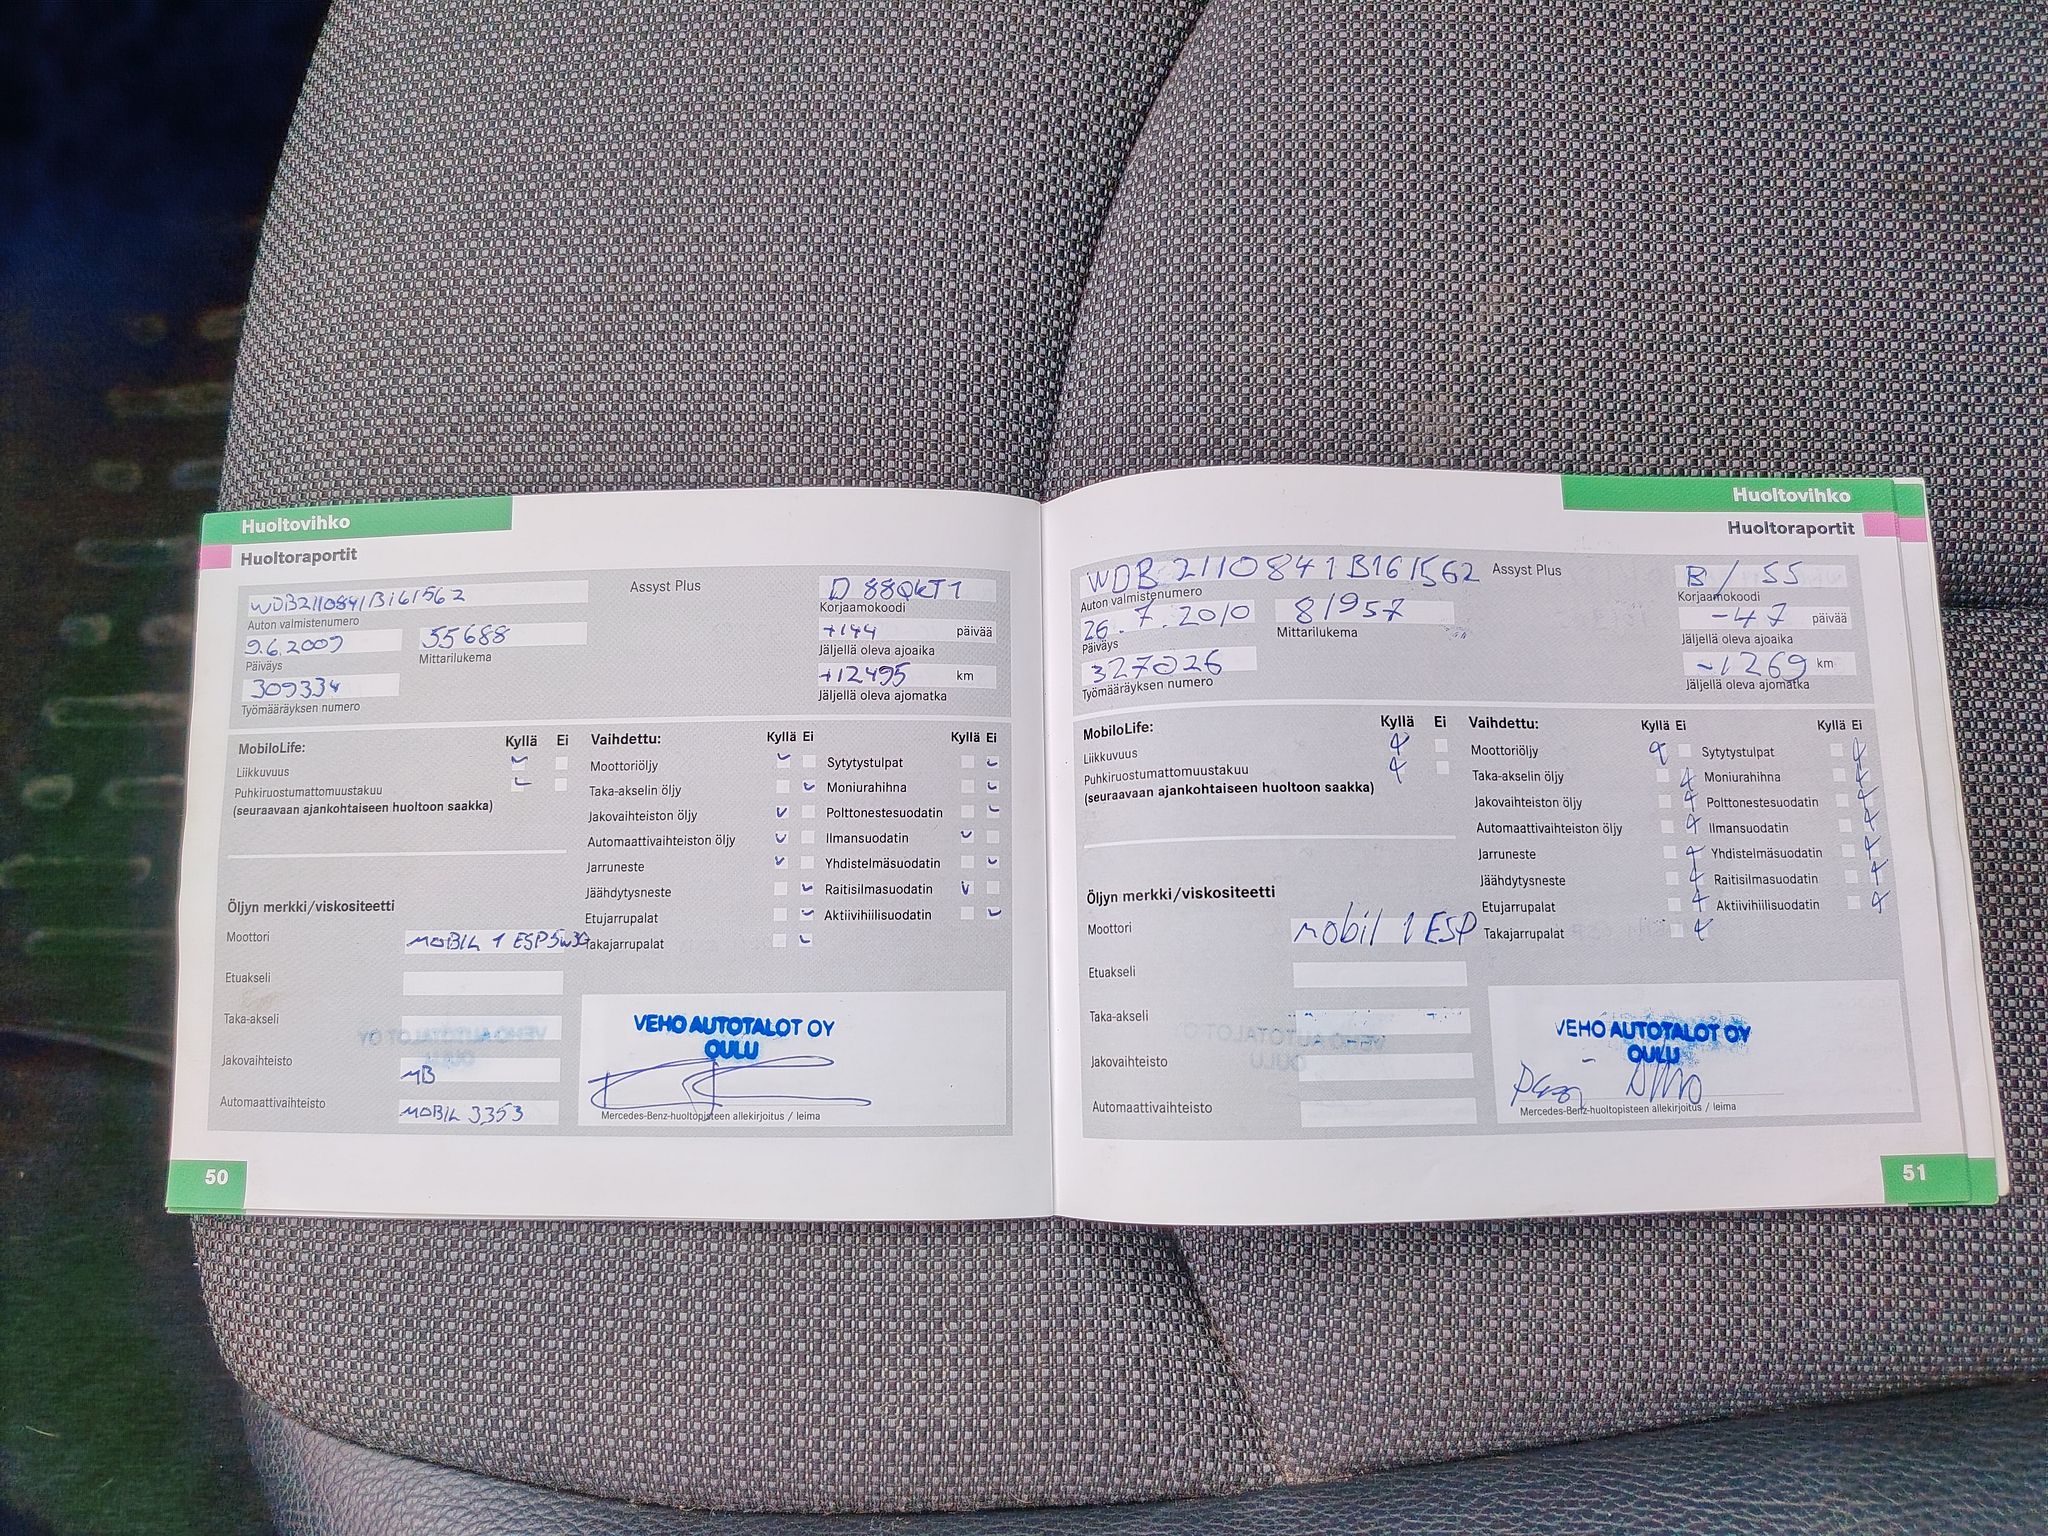 Huoltovihko
Huoltoraportit
WDB2110841B161562
Auton valmistenumero
Assyst Plus
D 88QKT1
Korjaamokoodi
9.6.2009
Päiväys
55688
Mittarilukema
+144 päivää
Jäljellä oleva ajoaika
309334
Työmääräyksen numero
+12495 km
Jäljellä oleva ajomatka
MobiloLife: Kyllä Ei
Liikkuvuus
Puhkiruostumattomuustakuu
(seuraavaan ajankohtaiseen huoltoon saakka)
Vaihdettu: Kyllä Ei Kyllä Ei
Moottoriöljy Sytytystulpat
Taka-akselin öljy Moniurahihna
Jakovaihteiston öljy Polttonestesuodatin
Automaattivaihteiston öljy Ilmansuodatin
Jarruneste Yhdistelmäsuodatin
Jäähdytysneste Raitisilmasuodatin
Etujarrupalat Aktiivihiilisuodatin
Takajarrupalat
Öljyn merkki/viskositeetti
Moottori MOBIL 1 ESP 5W30
Etuakseli
Taka-akseli
Jakovaihteisto MB
Automaattivaihteisto MOBIL 3353
VEHO AUTOTALOT OY
OULU
Mercedes-Benz-huoltopisteen allekirjoitus / leima
50
Huoltovihko
Huoltoraportit
WDB2110841B161562
Auton valmistenumero
Assyst Plus
B / 55
Korjaamokoodi
26.7.2010
Päiväys
81957
Mittarilukema
-47 päivää
Jäljellä oleva ajoaika
327026
Työmääräyksen numero
-1269 km
Jäljellä oleva ajomatka
MobiloLife: Kyllä Ei
Liikkuvuus
Puhkiruostumattomuustakuu
(seuraavaan ajankohtaiseen huoltoon saakka)
Vaihdettu: Kyllä Ei Kyllä Ei
Moottoriöljy Sytytystulpat
Taka-akselin öljy Moniurahihna
Jakovaihteiston öljy Polttonestesuodatin
Automaattivaihteiston öljy Ilmansuodatin
Jarruneste Yhdistelmäsuodatin
Jäähdytysneste Raitisilmasuodatin
Etujarrupalat Aktiivihiilisuodatin
Takajarrupalat
Öljyn merkki/viskositeetti
Moottori mobil 1 ESP
Etuakseli
Taka-akseli
Jakovaihteisto
Automaattivaihteisto
VEHO AUTOTALOT OY
OULU
Mercedes-Benz-huoltopisteen allekirjoitus / leima
51